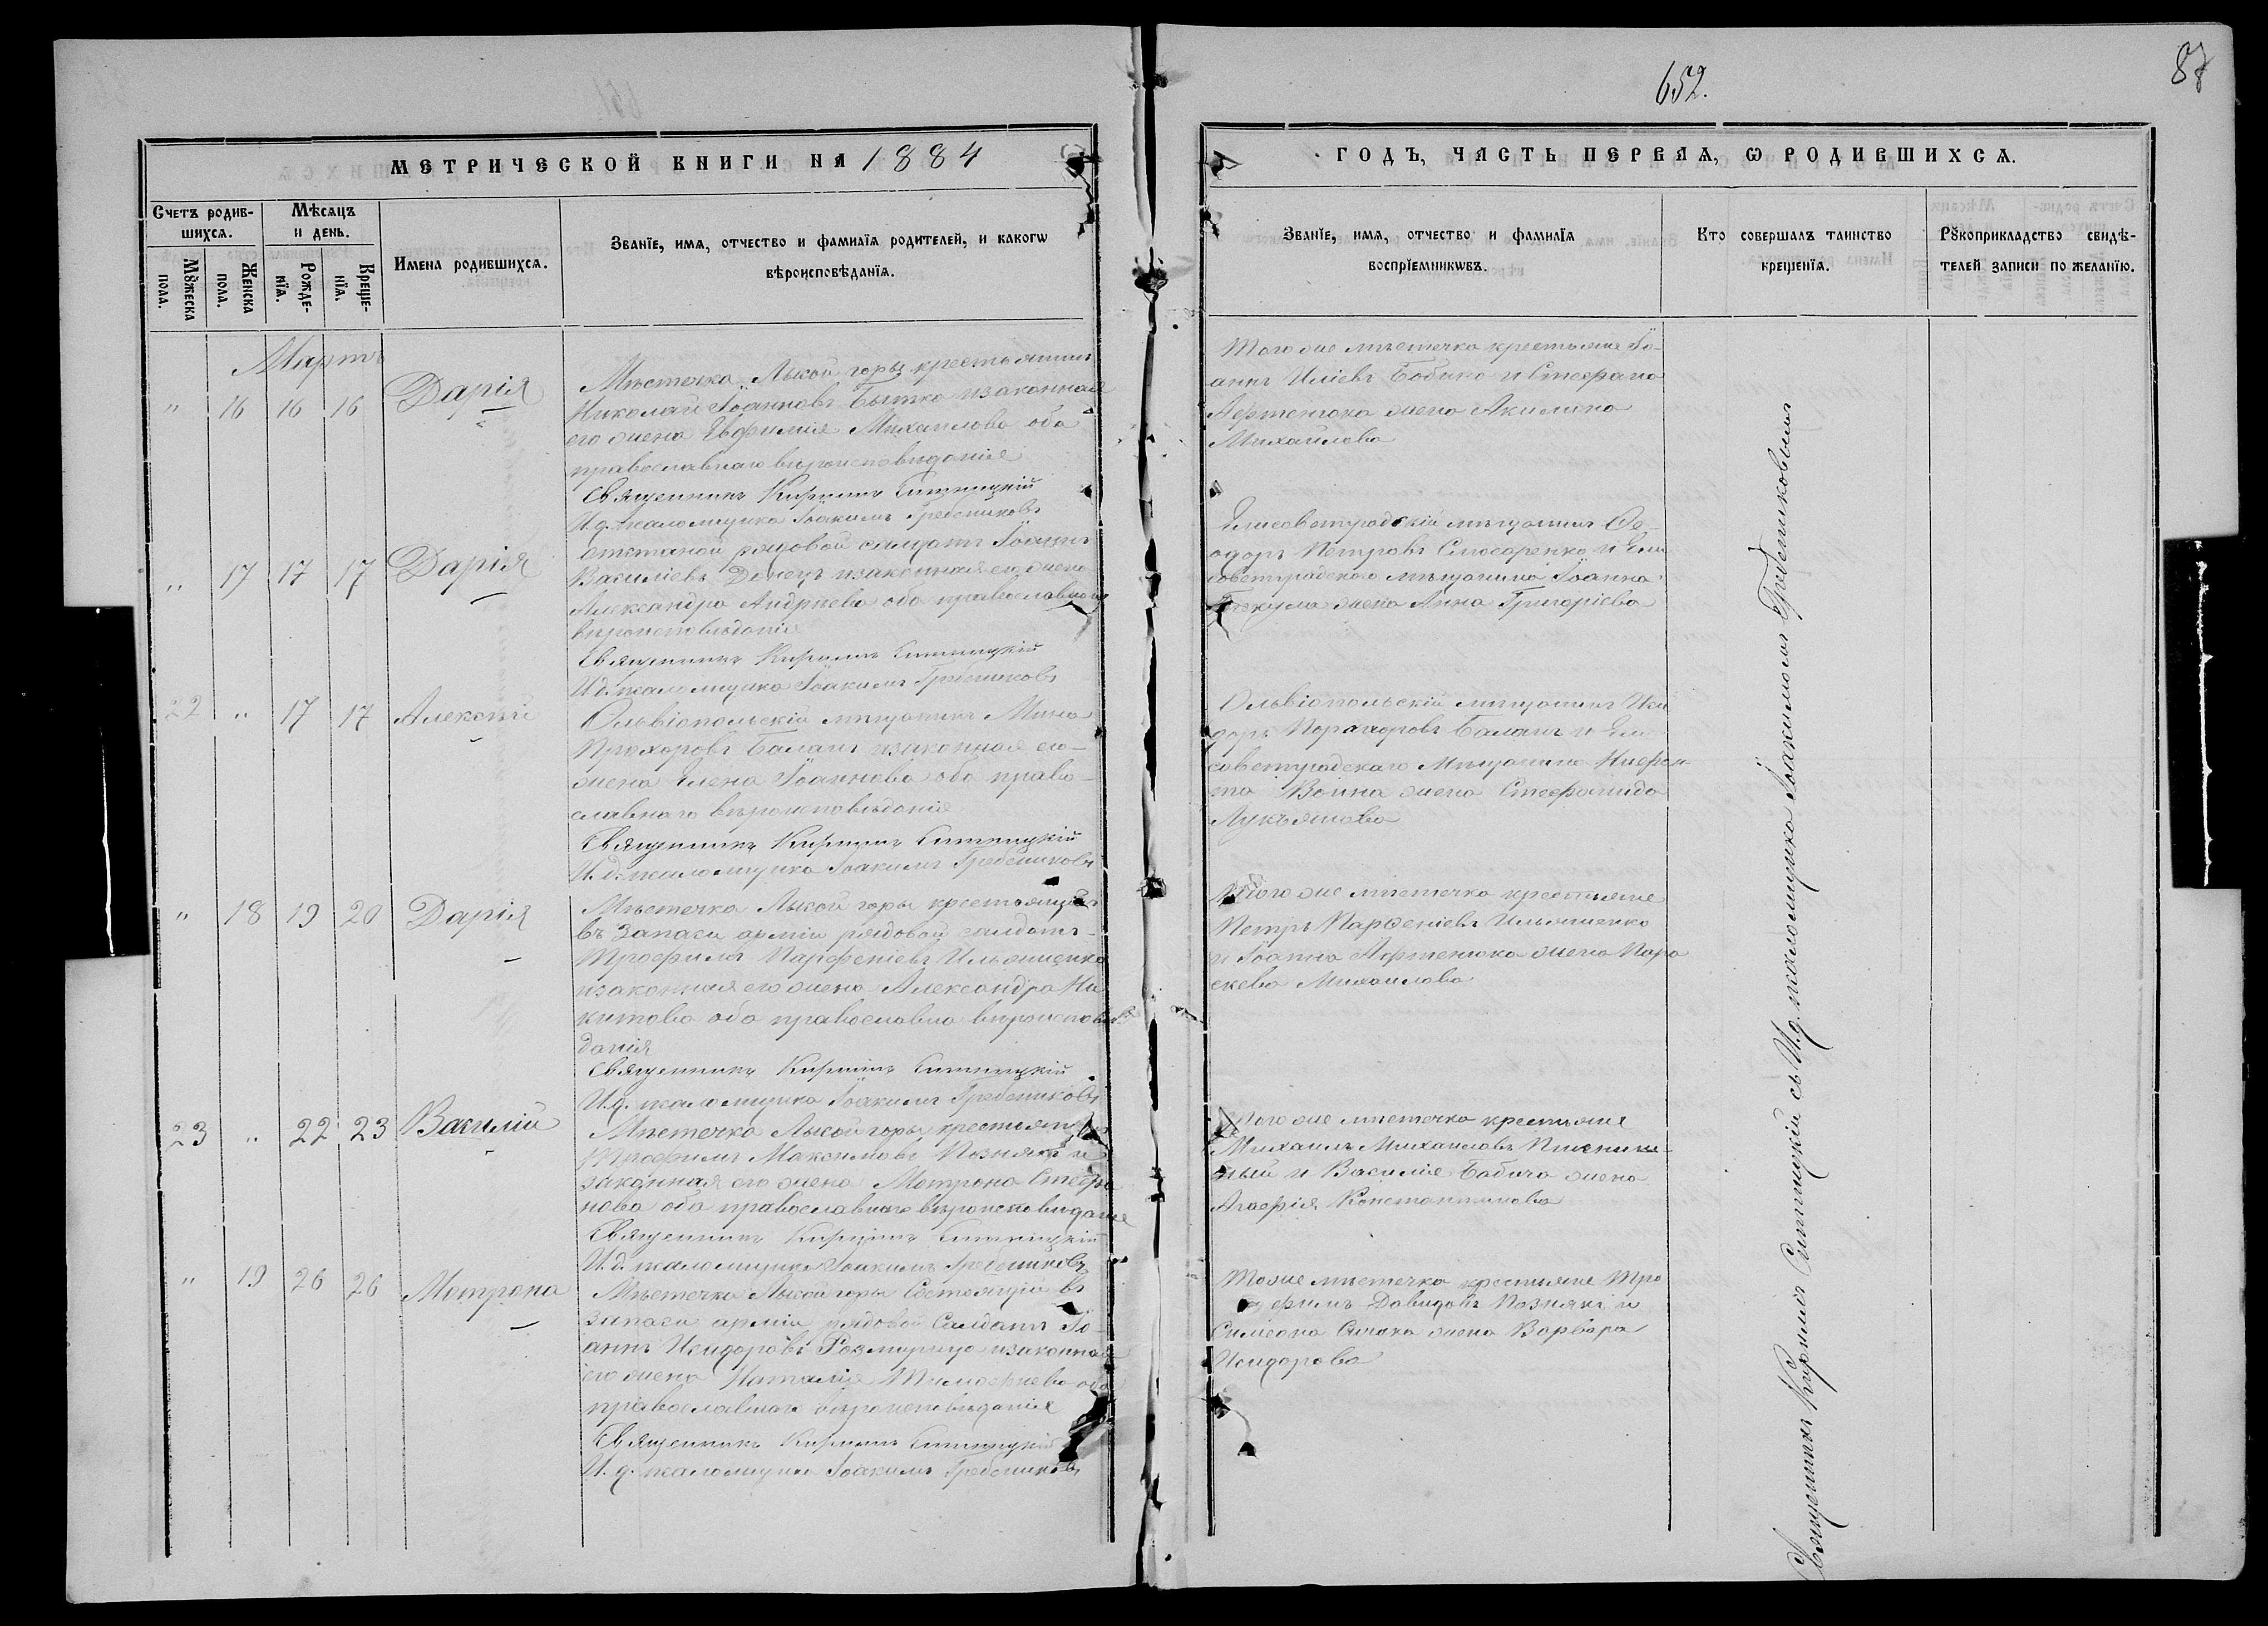 652.
87
МЕТРИЧЕСКОЙ КНИГИ НА 1884
ГОДЪ, ЧАСТЬ ПЕРВАЯ, Ѡ РОДИВШИХСѦ.
Счетъ родив-
шихсѧ.
Мѣсѧцъ
и день.
Мꙋжеска
пола.
Женска
пола.
Рожде-
нїѧ.
Креще-
нїѧ.
Имена родившихсѧ.
Званїе, имѧ, отчество и фамилїѧ родителей, и какогѡ
вѣроисповѣданїѧ.
Званїе, имѧ, отчество и фамилїѧ
воспрїемникѡвъ.
Кто совершалъ таинство
крещенїѧ.
Рꙋкоприкладство свидѣ-
телей записи по желанїю.
Мартъ
" 16 16 16 Дарія
Мѣстечка Лысой горы крестьянинъ
Николай Іоанновъ Бытко изаконная
его жена Евфимія Михаилова оба
православнаго вѣроисповѣданія
Священникъ Кириллъ Ситницкій
И.д. псаломщика Іоакимъ Гребениковъ
Того же мѣстечка крестьяне Іо-
аннъ Иліевъ Бобико и Стефана
жена Акилина
Михайлова
" 17 17 17 Дарія
отставной рядовой солдатъ Іоаннъ
Василіевъ Донецъ изаконная его жена
Александра Андреева оба православнаго
вѣроисповѣданія
Священникъ Кириллъ Ситницкій
И.д. псаломщика Іоакимъ Гребениковъ
Елисаветградскій мѣщанинъ Ѳе-
одоръ Петровъ Слюсаренко и Ели
саветградскаго мѣщанина Іоанна
жена Анна Григоріева
22 " 17 17 Алексѣй
Ольвіопольскій мѣщанинъ Мина
Прохоровъ Баланъ изаконная его-
жена Елена Іоаннова оба право-
славнаго вѣроисповѣданія
Священникъ Кириллъ Ситницкій
И.д. псаломщика Іоакимъ Гребениковъ
Ольвіопольскій мѣщанинъ Иси
доръ Баланъ и Ели
саветградскаго Мѣщанина Нифон-
та Воина жена Стефанида
Лукьянова
" 18 19 20 Дарія
Мѣстечка Лысой горы
въ Запаси арміи рядовой солдатъ-
Трофимъ Парфеніевъ Ильяшенко
изаконная его жена Александра Ни
китова оба православна вѣроисповѣ
данія
Священникъ Кириллъ Ситницкій
И.д. псаломщика Іоакимъ Гребениковъ
Того же мѣстечка крестьяне
Петръ Парѳеніевъ Ильяшенко
и Іоанна жена Пара
скева Михаилова
23 " 22 23 Василій
Мѣстечка Лысой горы крестьянинъ
Трофимъ Максимовъ Познякъ и
законная его жена Матрона Стефа
нова оба православнаго вѣроисповѣданіе
Священникъ Кириллъ Ситницкій
И.д. псаломщика Іоакимъ Гребениковъ
Того же мѣстечка крестьяне
Михаилъ Михаиловъ Пшенич-
ный и Василія Бабича жена
Агафія Константинова
" 19 26 26 Матрона
Мѣстечка Лысой горы Состоящій въ
запаси арміи рядовой Салдатъ Іо-
аннъ Исидоровъ Розмирица изаконная
его жена Наталія Тимофеева оба
православнаго вѣроисповѣданія
Священникъ Кириллъ Ситницкій
И.д. псаломщика Іоакимъ Гребениковъ
Тоже мѣстечка крестьяне Тро
фимъ Давидовъ Познякъ и
Симеона жена Варвара
Исидорова
Священникъ Кириллъ Ситницкій съ И.д. псаломщика Іоакимомъ Гребениковымъ